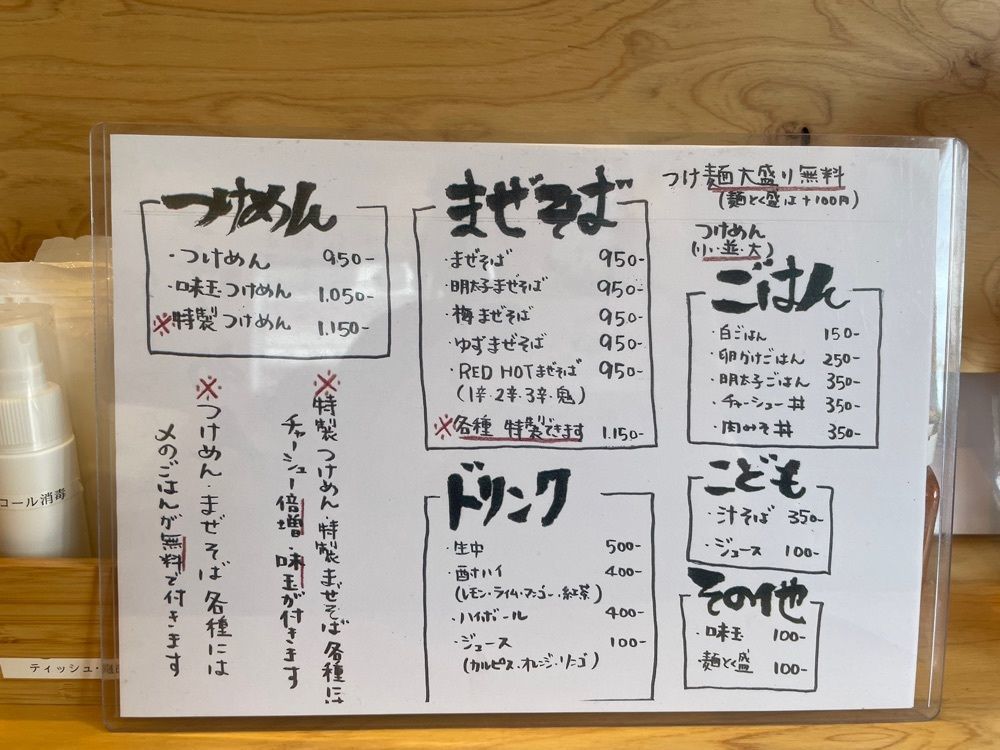 つけめん
・つけめん 950-
・味玉つけめん 1.050-
※特製つけめん 1.150-
※特製つけめん・特製まぜそば各種は
チャーシュー倍増・味玉が付きます
※つけめん・まぜそば各種には
〆のごはんが無料で付きます
まぜそば
・まぜそば 950-
・明太子まぜそば 950-
・梅まぜそば 950-
・ゆずまぜそば 950-
・RED HOTまぜそば 950-
(1辛・2辛・3辛・鬼)
※各種 特製できます 1.150-
ドリンク
・生中 500-
・酎ハイ 400-
(レモン・ライム・マンゴー・紅茶)
・ハイボール 400-
・ジュース 100-
(カルピス・オレンジ・リンゴ)
つけ麺大盛り無料
(麺とく盛は+100円)
つけめん
(小・並・大)
ごはん
・白ごはん 150-
・卵かけごはん 250-
・明太子ごはん 350-
・チャーシュー丼 350-
・肉みそ丼 350-
こども
・汁そば 350-
・ジュース 100-
その他
・味玉 100-
・麺とく盛 100-
コール消毒
ティッシュ・